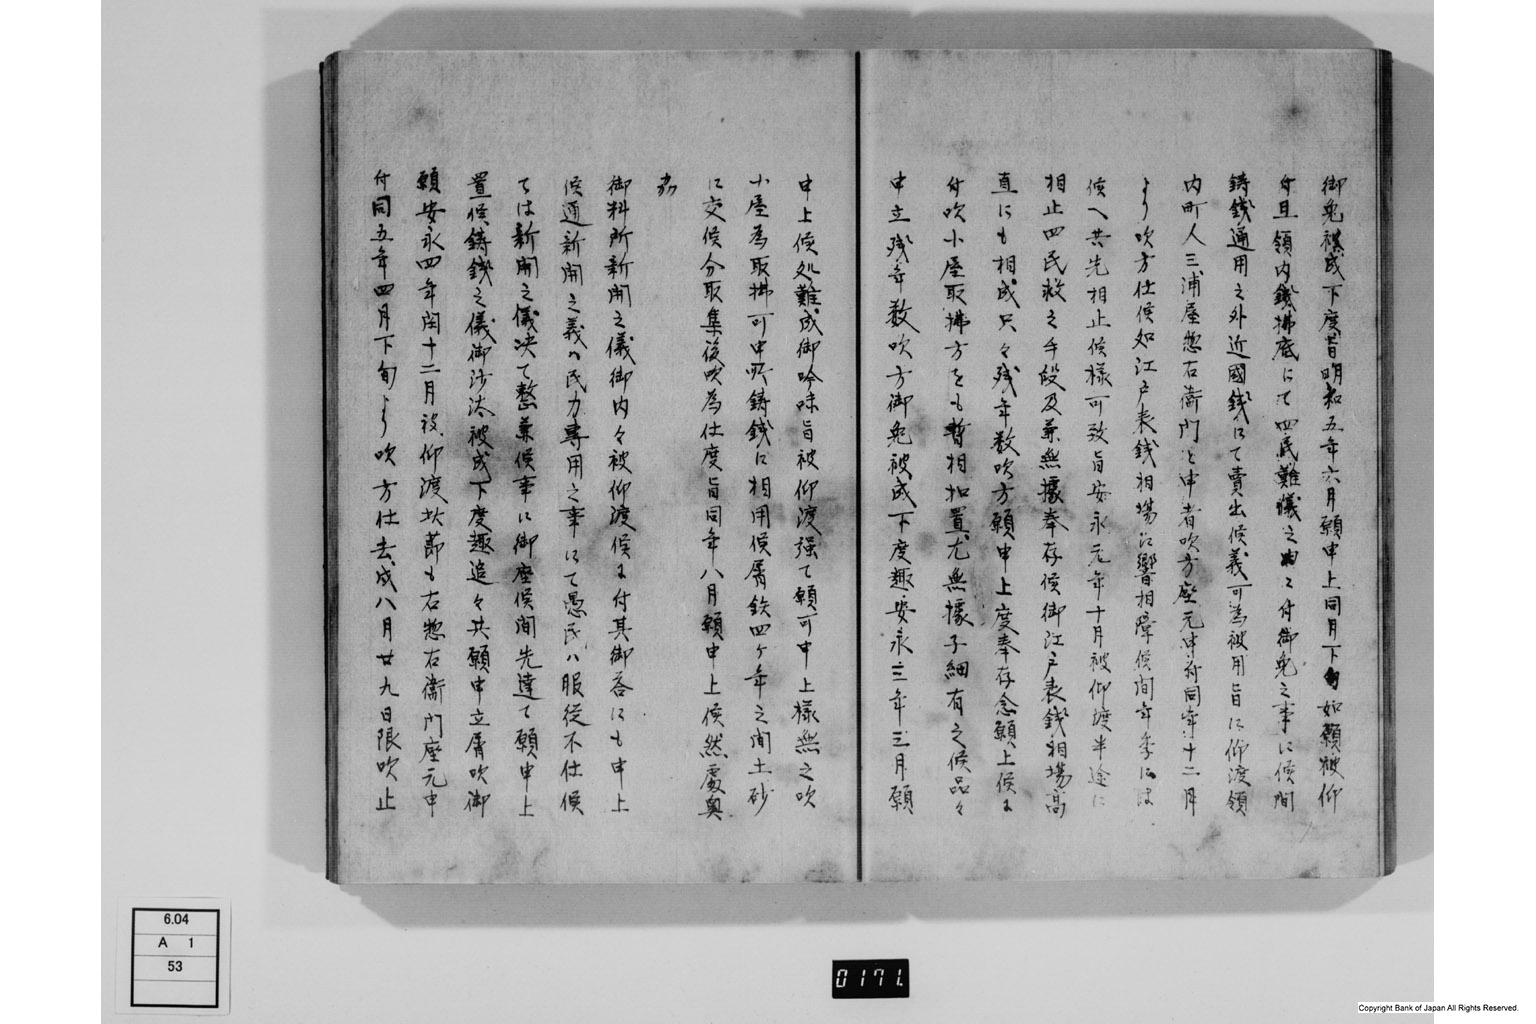 御免被成下度旨明和五年六月願申上同月下旬如願被仰
付且領内錢拂底にて四民難儀之由ニ付御免之事に候間
鋳錢通用之外近國錢にて賣出候義可為被用旨に仰渡領
内町人三浦屋惣右衛門と申者吹方座元申付同年十二月
より吹方仕候如江戸表錢相場に響相障候間年季には
候へ共先相止候様可致旨安永元年十月被仰渡半途に
相止四民救之手段及兼無據奉存候御江戸表錢相場高
直にも相成只々残年数吹方願申上度奉存念願上候に
付吹小屋取拂方をも暫相扣置尤無據子細有之候品々
申立残年数吹方御免被成下度趣安永三年三月願
申上候処難成御吟味旨被仰渡强て願可申上様無之吹
小屋為取拂可申所鋳錢に相用候屑鉄四ケ年之間土砂
に交候分取集後吹為仕度旨同年八月願申上候然處奥
州
御料所新開之儀御内々被仰渡候に付其御答にも申上
候通新開之義ハ民力専用之事にて愚民ハ服従不仕候
ては新開之儀决て整兼候事に御座候間先達て願申上
置候鋳錢之儀御沙汰被成下度趣追々共願申立屑吹御
願安永四年閏十二月被仰渡此節も右惣右衛門座元申
付同五年四月下旬より吹方仕去戌八月廿九日限吹止
6.04
A 1
53
0171.
Copyright Bank of Japan All Rights Reserved.